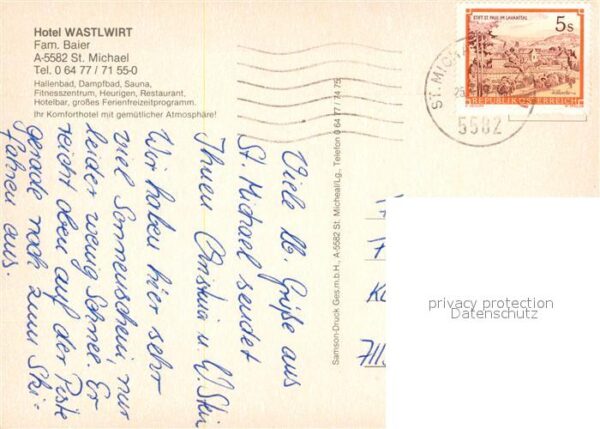 Hotel WASTLWIRT
Fam. Baier
A-5582 St. Michael
Tel. 0 64 77 / 71 55-0
Hallenbad, Dampfbad, Sauna,
Fitnesszentrum, Heurigen, Restaurant,
Hotelbar, großes Ferienfreizeitprogramm.
Ihr Komforthotel mit gemütlicher Atmosphäre!
Viele lb. Grüße aus
St. Michael sendet
Ihnen Christina u. W.
Wir haben hier sehr
viel Sonnenschein, nur
leider wenig Schnee. Er
reicht oben auf der Piste
gerade noch zum Ski-
fahren aus.
Samson-Druck Ges.m.b.H., A-5582 St. Micheal/Lg., Telefon 0 64 77 / 4 75
STIFT ST. PAUL IM LAVANTTAL
5s
REPUBLIK ÖSTERREICH
ST. MICH
5582
privacy protection
Datenschutz